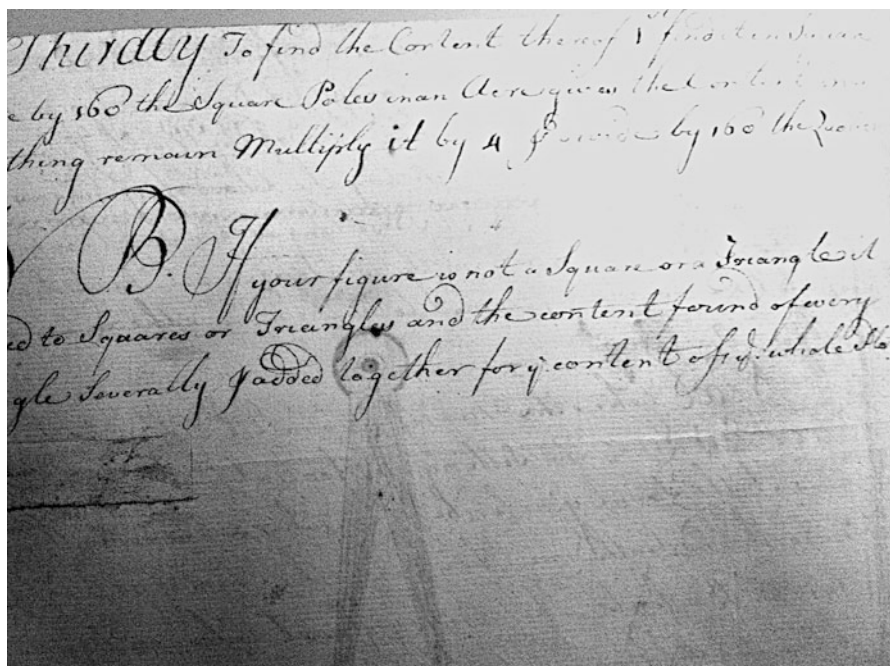 Thirdly To find the Content thereof 1st find it in Square
e by 160 the Square Poles in an Acre gives the Content
thing remain Multiply it by 4 & divide by 160 the
B. If your figure is not a Square or a Triangle it
ed to Squares or Triangles and the content found of every
gle Severally & added together for ye content of ye whole